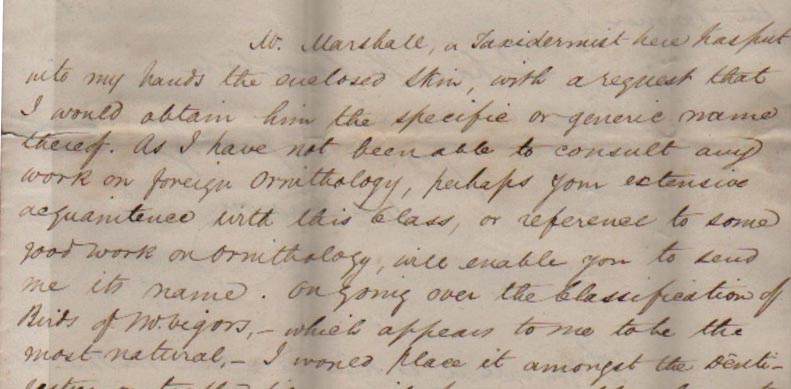 Mr. Marshall, a Taxidermist here has put
into my hands the enclosed Skin, with a request that
I would obtain him the specific or generic name
thereof. As I have not been able to consult any
work on foreign Ornithology, perhaps your extensive
acquaintence with this Class, or reference to some
good work on Ornithology, will enable you to send
me its name. On going over the Classification of
Birds of Mr. Vigors, – which appears to me to be the
most natural, – I would place it amongst the Denti-